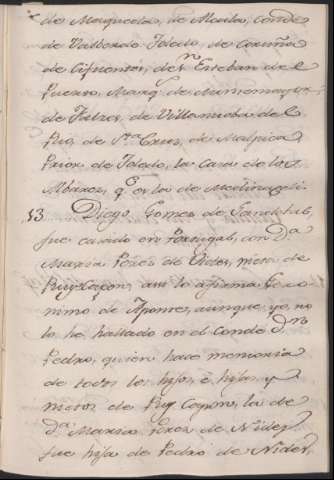 de Maqueda, de Alcala, Conde
de Valherado Toledo, de Coruña
de Cifuentes, de Sn. Esteban del
Puerto, Marqs. de
de Falzes, de Villanueba del
Rio, de Sta. Cruz, de Malpica
Prior de Toledo, la Casa de los
Albares, qe. es la de Medinazeli.
13 Diego Gomez de Sandobal,
fue casado en Portugal, con Da.
Maria Perez de Nidez, nieta de
Ruy Capon, asi lo afirma Gero-
nimo de Aponte, aunque yo, no
lo he hallado en el Conde Dn.
Pedro, quien hace memoria
de todos los hijos, é hijas, y
nietos de Ruy Capon, la de
Da. Maria Perez de Nidez,
fue hija de Pedro de Nidez,